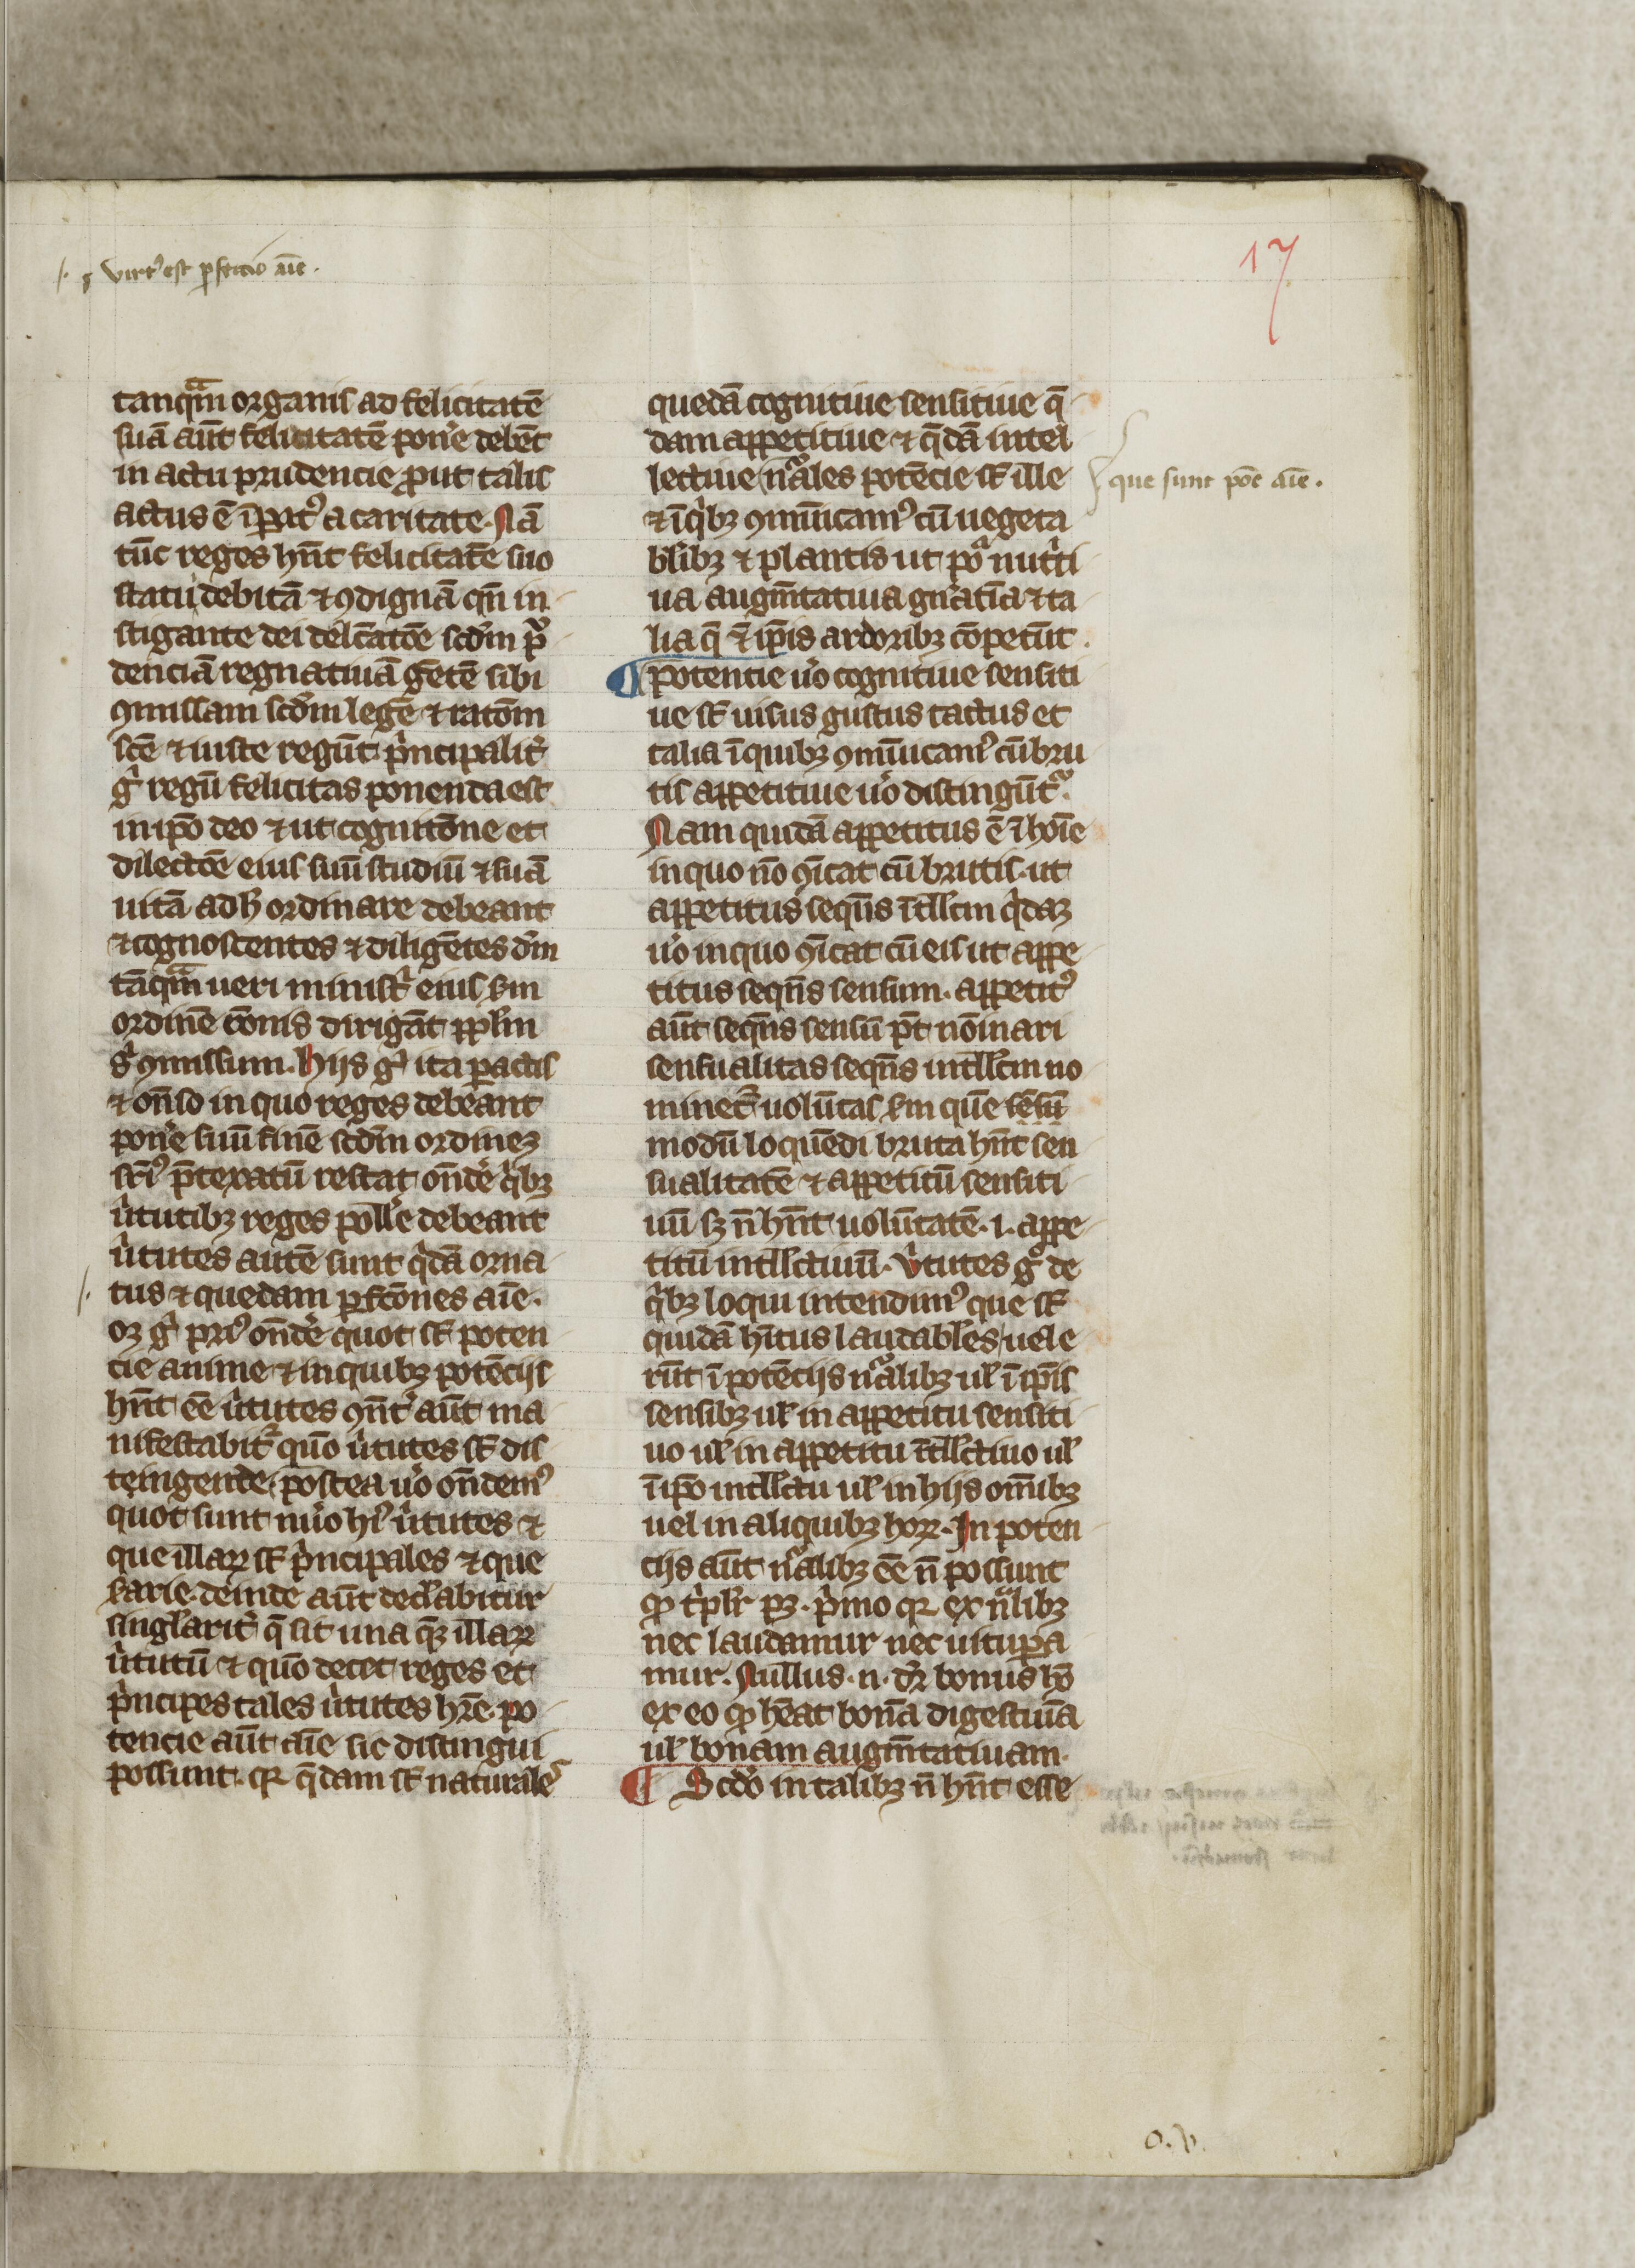 virt᷒ est ꝑfectio aīe.
17
tanqᷓm organis ad felicitatē
suā aūt felicitatē pon̄e debēt
in actu prudencie ꝓut talis
actus ē īꝑat᷒ a caritate. Nā
tūc reges hn̄t felicitatē suo
statui debitā ⁊ ꝯdignā qn̄ in
stigante dei
denciā regnatiuā gētē sibi
ꝯmissam scd̄m legē ⁊ ratōm
scē ⁊ iuste regūt. pͥncipalit̄
gͥ regū felicitas ponenda est
in ipō deo ⁊ ut cognitōne et
dilectōe eius suū studiū ⁊ suā
uitā ad h̄ ordinare debeant
⁊ cognoscentes ⁊ diligētes dm̄
tāqᷓm ueri ministͥ eius ẜm
ordinē dirigāt ppl̄m
sͥ ꝯmissum. Hijs gͥ ita ꝑactis
⁊ on̄so in quo reges debeant
pon̄e suū finē scd̄m ordinez
p̄texatū restat on̄dē qͥbꝫ
uͥtutibꝫ reges poll̄e debeant
uͥtutes autē sunt qͥdā orna
tus ⁊ quedam ꝑfcōnes aīe.
oꝫ gͥ pri᷒ on̄dē quot sͭ poten
cie anime ⁊ in quibꝫ potēcijs
hn̄t ēē uͥtutes aūt ma
nifestabit᷑ quō uͥtutes sͭ dis
teingende postea uͦo on̄dem᷒
quot sunt nūo h᷒ uͥtutes ⁊
que illaꝝ sͭ pͥncipales ⁊ que
deinde aūt decl̄abitur
singl̄arit̄ q̄ sit una q̄ꝫ illaꝝ
uͥtutū ⁊ quō decet reges et
pͥncipes tales uͥtutes hr̄e. po
tencie aūt aīe sic distingui
possunt. qꝛ q̄dam sͭ naturales
quedā cognitiue sensitiue q̄
dam appetitiue ⁊ q̄dā intel
lectiue nᷓales potēcie sͭ ille
⁊ ī qͥbꝫ ꝯmūicam᷒ cū uegeta
bl̄ibꝫ ⁊ plantis ut poᷓ nutͥti
ua augm̄tatiua gn̄atīa ⁊ ta
lia q̄ ⁊ ī ip̄is ardoribꝫ cōpetūt.
¶ potentie uͦo cognitiue sensiti
ue sͭ uisus gustus tactus et
talia ī quibꝫ ꝯmūicam᷒ cū bru
tis appetitiue uͦo distingūtᷓ.
Nam quidā appetitus ē ī hoīe
in quo nō ꝯīcat cū brutis. ut
appetitus seqn̄s ītll̄cm qͥdaꝫ
uͦo in quo ꝯīcat cū eis ut appe
titus seqn̄s sensum. appetit᷒
aūt seqn̄s sensū pt̄ nōinari
sensualitas seqn̄s intll̄cm no
minet᷑ uolūtas ẜm quē sēsū
modū loquēdi bruta hn̄t sen
sualitatē ⁊ appetitū sensiti
uū sꝫ n̄ hn̄t uolūtatē .i. appe
titū intll̄ctiuū. Vͥtutes gͦ de
qͥbꝫ loqui intendim᷒ que sͭ
quidā hītus laudabl̄es uel e
rūt ī potēcijs nᷓalibꝫ ul̄ ī ip̄is
sensibꝫ ul̄ in appetitu sensiti
uo ul̄ in appetitu ītll̄ctiuo ul̄
ī ipō intll̄ctu ul̄ in hijs om̄ibꝫ
uel in aliquibꝫ hoꝝ. In poten
cijs aūt nᷓalibꝫ ēē n̄ possunt
qͦ tͥpl̄r pꝫ. pͥmo qꝛ ex nᷓlibꝫ
nec laudamur nec uituꝑa
mur. Nullus .n. dr̄ bonus hō
ex eo qͦ hēat bonā digestiuā
ul̄ bonam augm̄tatiuam.
¶ Scdͦo in talibꝫ n̄ hn̄t esse
que sunt poē aīe.
o. v.